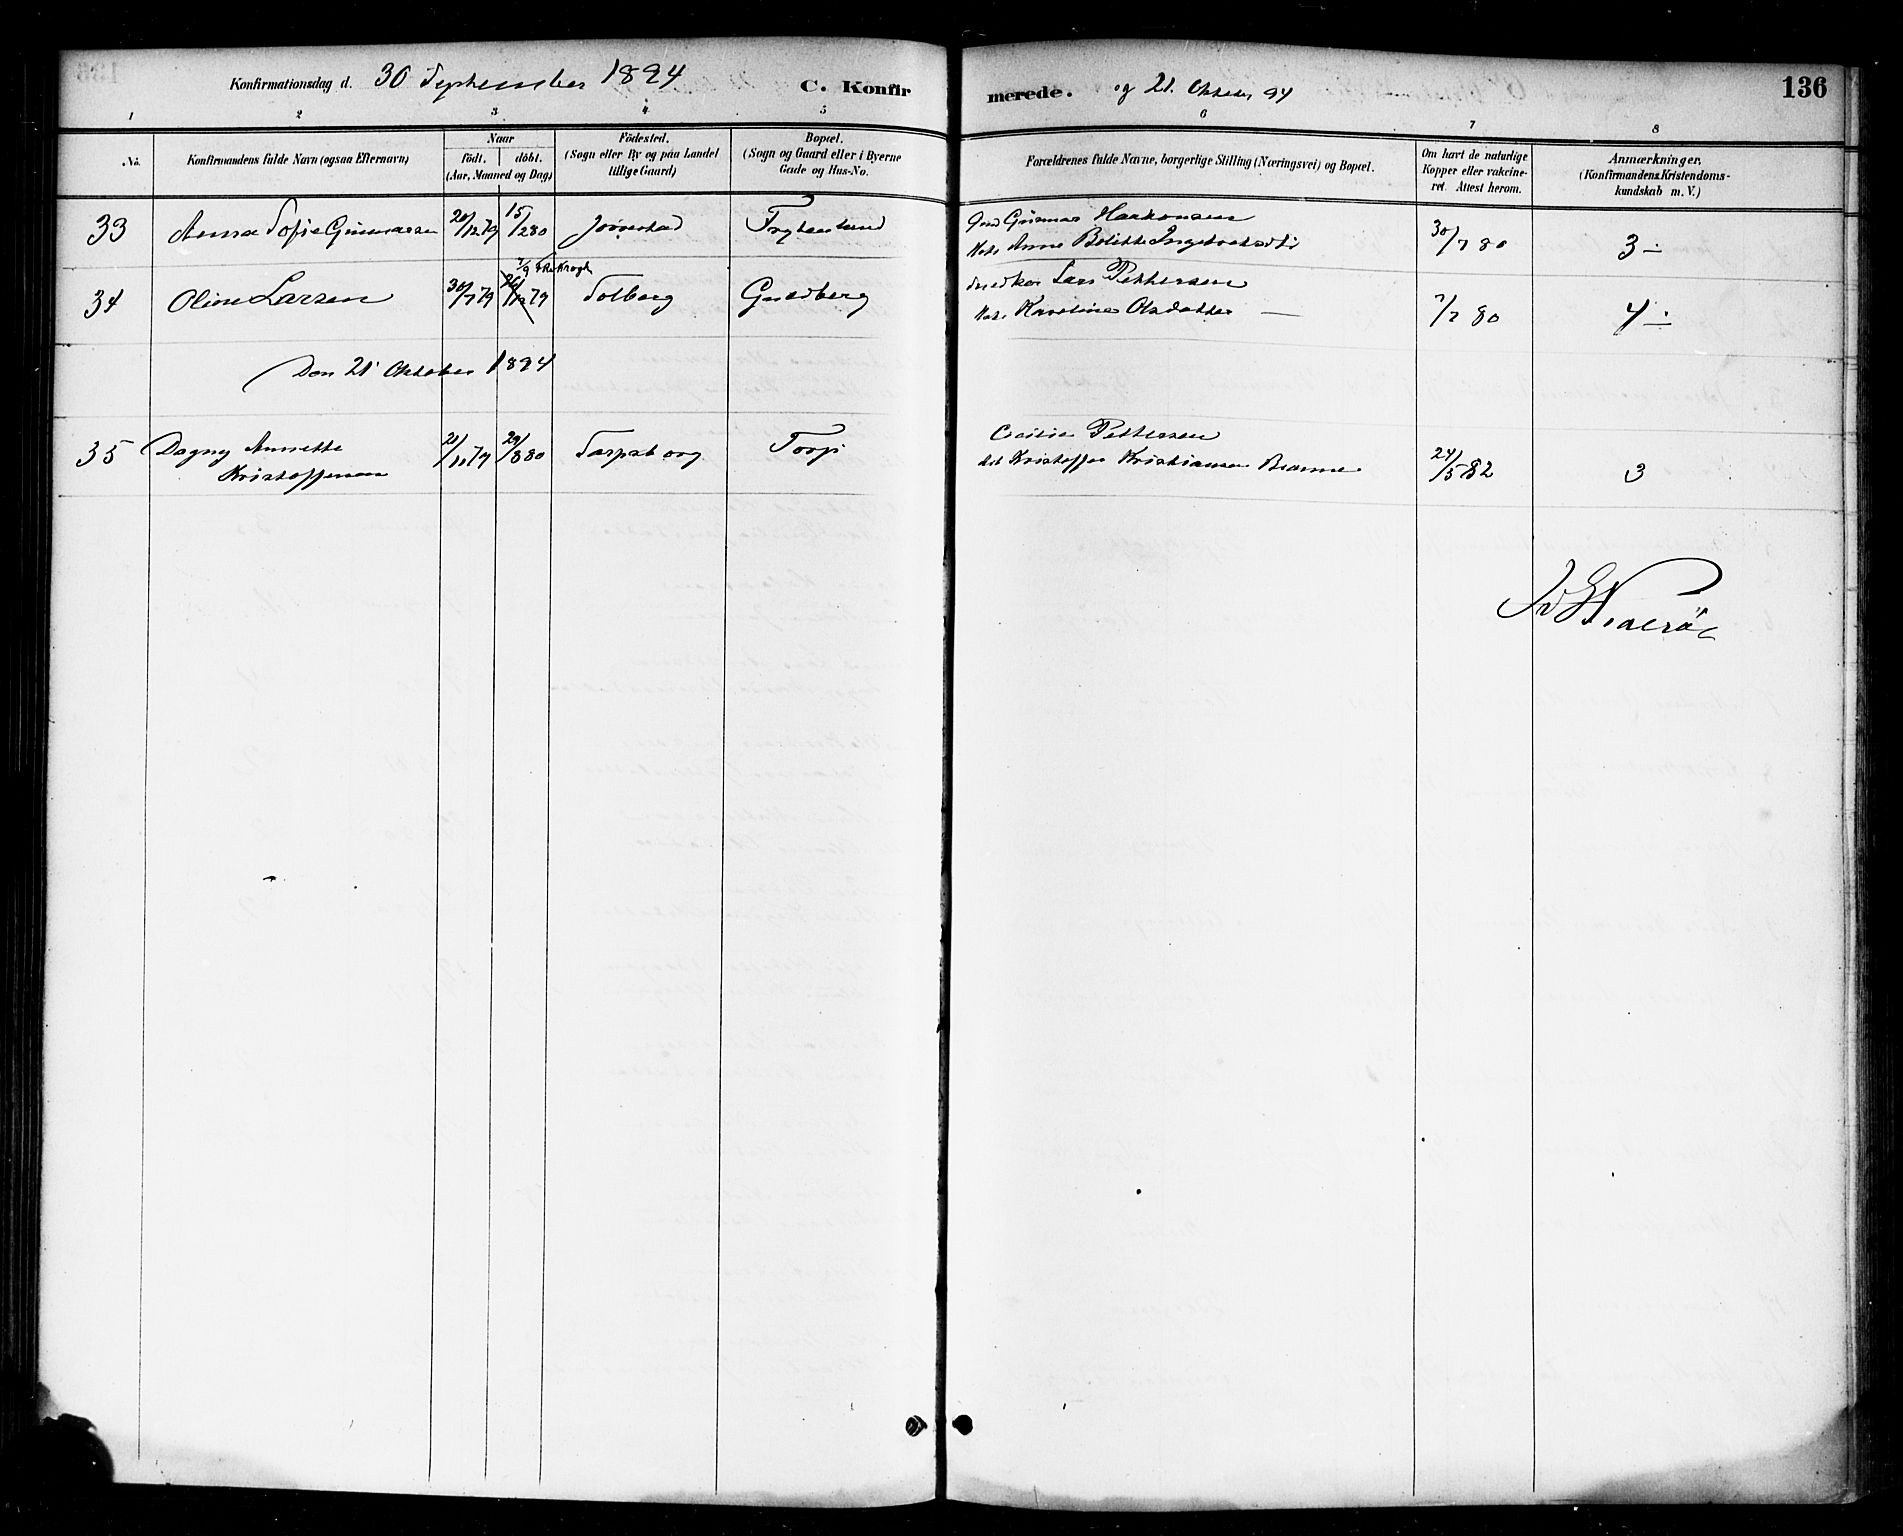 Konfirmationsdag d. 30 September 1894 C. Konfirmerede. og 21. Oktober 94 136
1 2 3 4 5 6 7 8
No. Konfirmandens fulde Navn (ogsaa Efternavn) Naar födt. döbt. (Aar, Maaned og Dag) Födested. (Sogn eller By og paa Landet tillige Gaard) Bopæl. (Sogn og Gaard eller i Byerne Gade og Hus-No. Forældrenes fulde Navne, borgerlige Stilling (Næringsvei) og Bopæl. Om havt de naturlige Kopper eller vakcineret. Attest herom. Anmærkninger. (Konfirmandens Kristendomskundskab m. V.)
33 Anna Sofie Gunnarsen 20/12 79 15/2 80 Jörrestad Frydenlund Gunnar Haakonsen 30/7 80 3÷
Anne Bolette
34 Oline Larsen 30/7 79 7/9 79 Solberg Guldberg Snedker Lars Pettersen 7/7 80 4÷
Karoline Olsdatter —
Den 21 Oktober 1894
35 Dagny Annette 21/11 79 29/8 80 Sarpsborg Torp Cecilie Pettersen 24/5 82 3
Kristoffersen Kristoffer Kristiansen